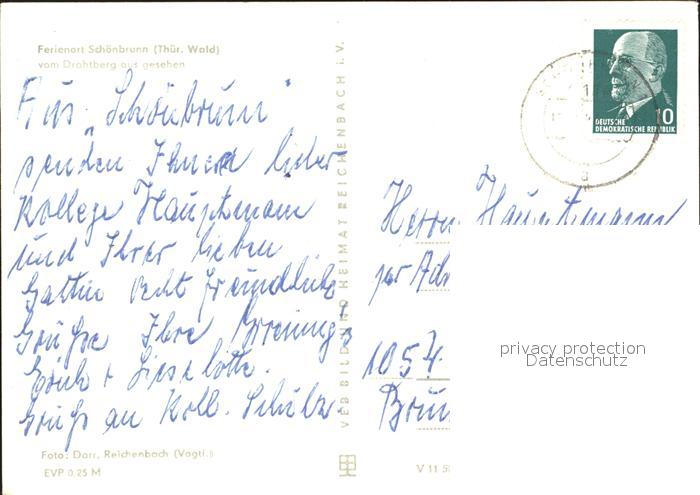 Ferienort Schönbrunn (Thür. Wald)
vom Drahtberg aus gesehen
Aus "Schönbrunn"
senden Ihnen lieber
Kollege Hauptmann
und Ihrer lieben
Gattin recht freundliche
Grüße Ihre Brening's
Erich + Lieselotte.
Gruß an Koll. Schulz
Foto: Darr, Reichenbach (Vogtl.)
EVP 0,25 M
VEB BILD UND HEIMAT REICHENBACH i. V.
V 11 5
10
DEUTSCHE
DEMOKRATISCHE REPUBLIK
Herrn Hauptmann
per Adr
1054
Brun
privacy protection
Datenschutz